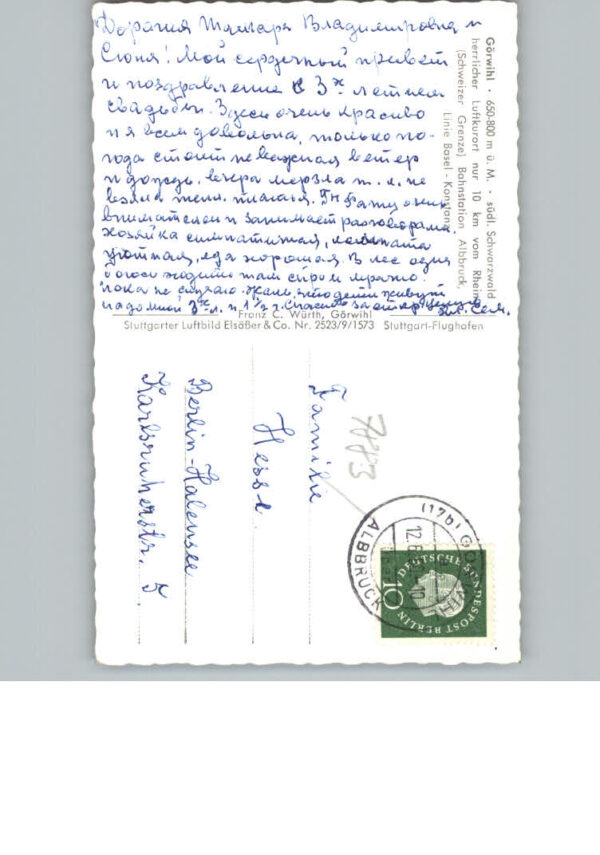 Дорагия Тамара Владимировна и
Сюня! Мой сердечный привет
и поздравление с 3х летием
свадьбы. Здесь очень красиво
и я всем довольна, только по-
года стоит неважная ветер
и дождь, вчера мерзла т. к. не
взяла тепл. платья.
внимателен и занимает разговорами.
хозяйка симпатичная, комната
уютная, еда хорошая. В лес одна
боюсь ходить там сыро и мрачно.
пока не скучаю. Жаль, что дети живут
надомной 3х л. и 1 1/2 г. Спасибо за
Görwihl · 650-800 m ü. M. · südl. Schwarzwald
herrlicher Luftkurort nur 10 km vom Rhein
(Schweizer Grenze) Bahnstation Albbruck,
Linie Basel - Konstanz
Franz C. Würth, Görwihl
Stuttgarter Luftbild Elsäßer & Co. Nr. 2523/9/1573 Stuttgart-Flughafen
Familie
Hesse.
Berlin-Halensee
Karlsruherstr. 5.
(17b)
ALBBRUCK
DEUTSCHE BUNDESPOST BERLIN
10